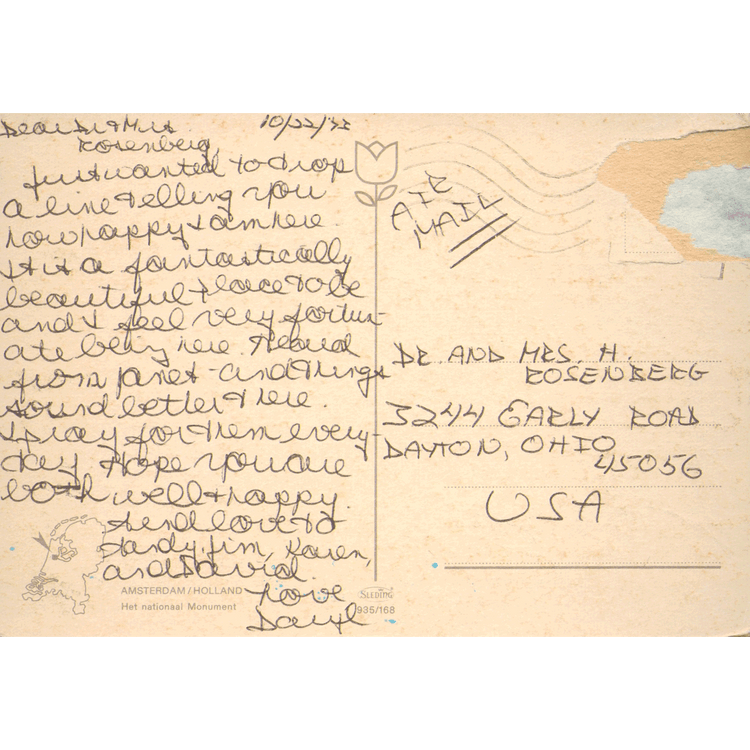 Dear Dr & Mrs. 10/22/
Rosenberg,
Just wanted to drop
a line telling you
how happy I am here.
It is a fantastically
beautiful place to be
and I feel very fortun-
ate being here. Heard
from Janet - and things
sound better there.
I pray for them every-
day. Hope you are
both well & happy.
Send love to
Jim, Karen,
and David.
Love
Daryl
AMSTERDAM / HOLLAND
Het nationaal Monument
SLEDING
935/168
AIR
MAIL
DR. AND MRS. H.
ROSENBERG
3244 EARLY ROAD
DAYTON, OHIO
45056
USA